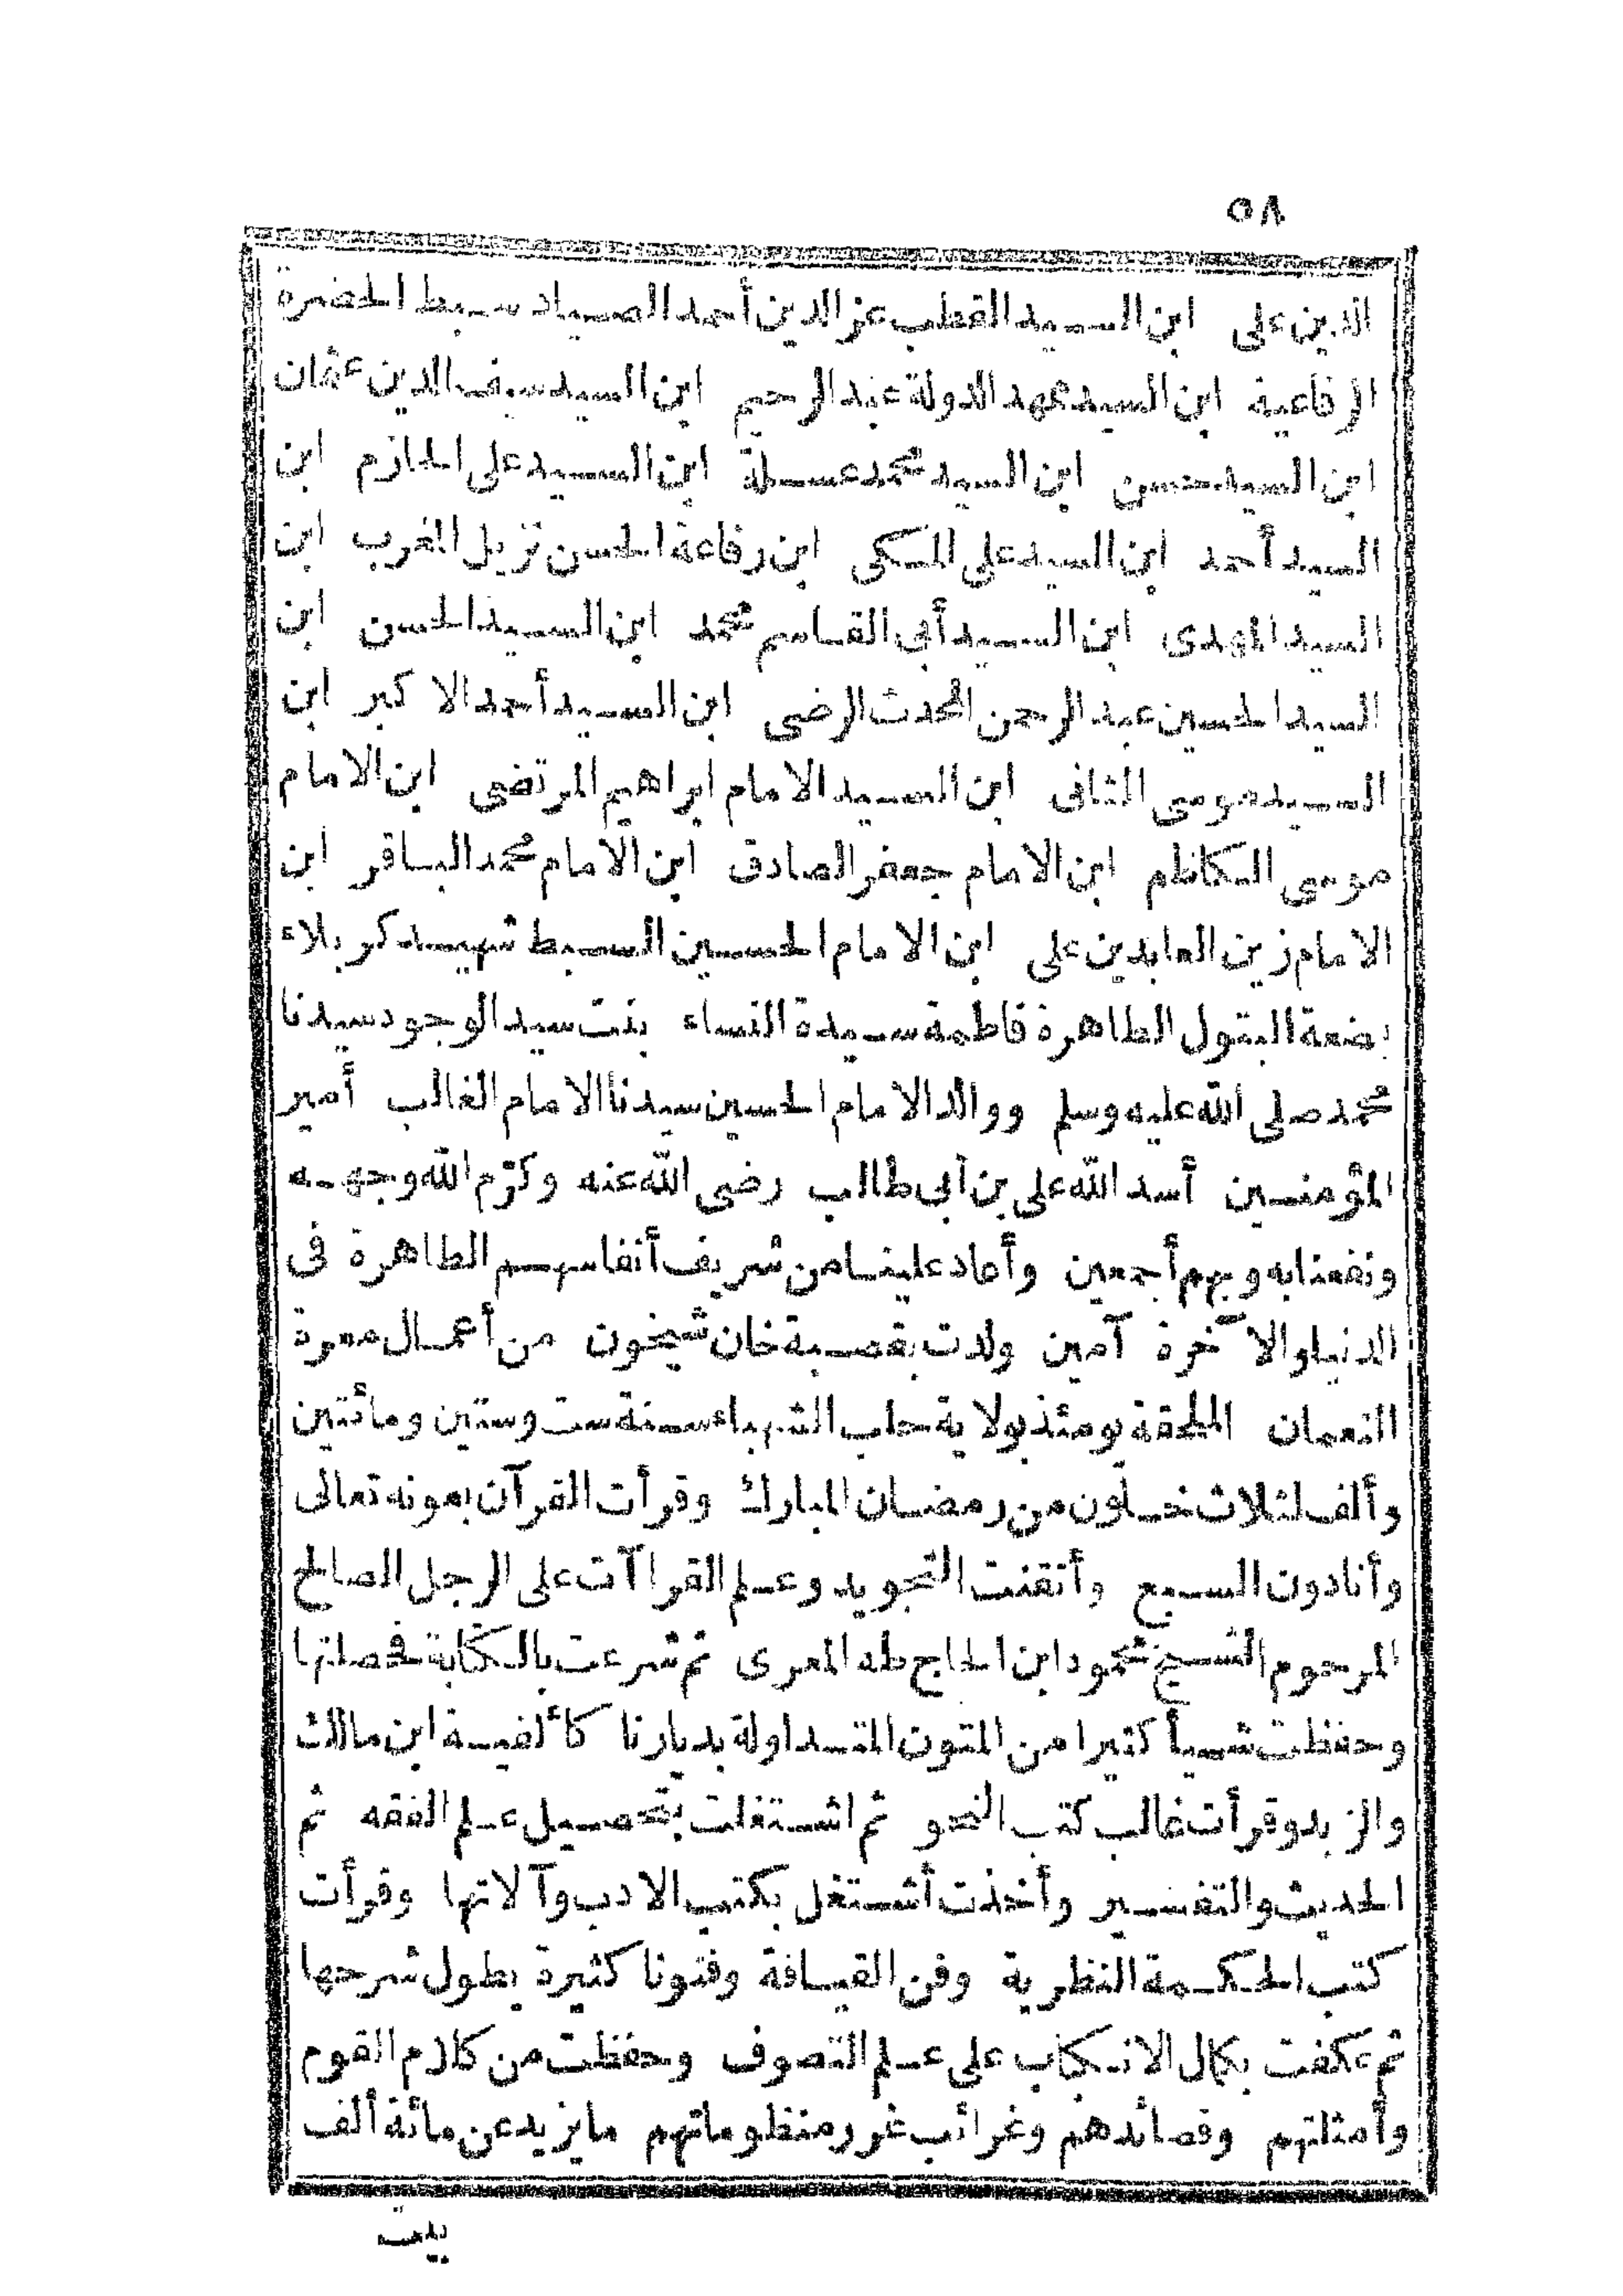 ٥٨
الدين على ابن السيد القطب عز الدين أحمد الصياد سبط الحضرة
الرفاعية ابن السيد مهد الدولة عبد الرحيم ابن السيد سيف الدين عثمان
ابن السيد حسن ابن السيد محمد عسلة ابن السيد على الحازم ابن
السيد أحمد ابن السيد على المكى ابن رفاعة الحسن نزيل المغرب ابن
السيد المهدى ابن السيد أبى القاسم محمد ابن السيد الحسن ابن
السيد الحسين عبد الرحمن المحدث الرضى ابن السيد أحمد الاكبر ابن
السيد موسى الثانى ابن السيد الامام ابراهيم المرتضى ابن الامام
موسى الكاظم ابن الامام جعفر الصادق ابن الامام محمد الباقر ابن
الامام زين العابدين على ابن الامام الحسين السبط شهيد كربلاء
بضعة البتول الطاهرة فاطمة سيدة النساء بنت سيد الوجود سيدنا
محمد صلى الله عليه وسلم ووالد الامام الحسين سيدنا الامام الغالب أمير
المؤمنين أسد الله على بن أبى طالب رضى الله عنه وكرّم الله وجهه
ونفعنا به وبهم أجمعين وأعاد علينا من شريف أنفاسهم الطاهرة فى
الدنيا والآخرة آمين ولدت بقصبة خان شيخون من أعمال معرة
النعمان الملحقة يومئذ بولاية حلب الشهباء سنة ست وستين ومأتين
وألف لثلاث خلون من رمضان المبارك وقرأت القرآن بعونه تعالى
وأنا دون السبع وأتقنت التجويد وعلم القراآت على الرجل الصالح
المرحوم الشيخ محمود ابن الحاج طه المعرى ثم شرعت بالكتابة فحصلتها
وحفظت شيأ كثيرا من المتون المتداولة بديارنا كألفية ابن مالك
والزبد وقرأت غالب كتب النحو ثم اشتغلت بتحصيل علم الفقه ثم
الحديث والتفسير وأخذت أشتغل بكتب الادب وآلاتها وقرأت
كتب الحكمة النظرية وفن القيافة وفنونا كثيرة يطول شرحها
ثم عكفت بكمال الانكباب على علم التصوف وحفظت من كلام القوم
وأمثلتهم وقصائدهم وغرائب غرر منظوماتهم ما يزيد عن مائة ألف
بيت